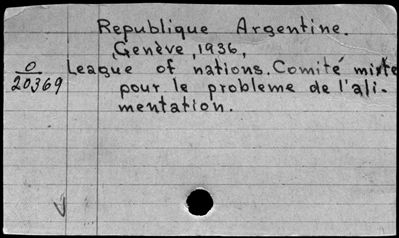 Republique Argentine.
Genève, 1936,
O League of nations. Comité mixte
20369 pour le probleme de l'ali-
mentation.